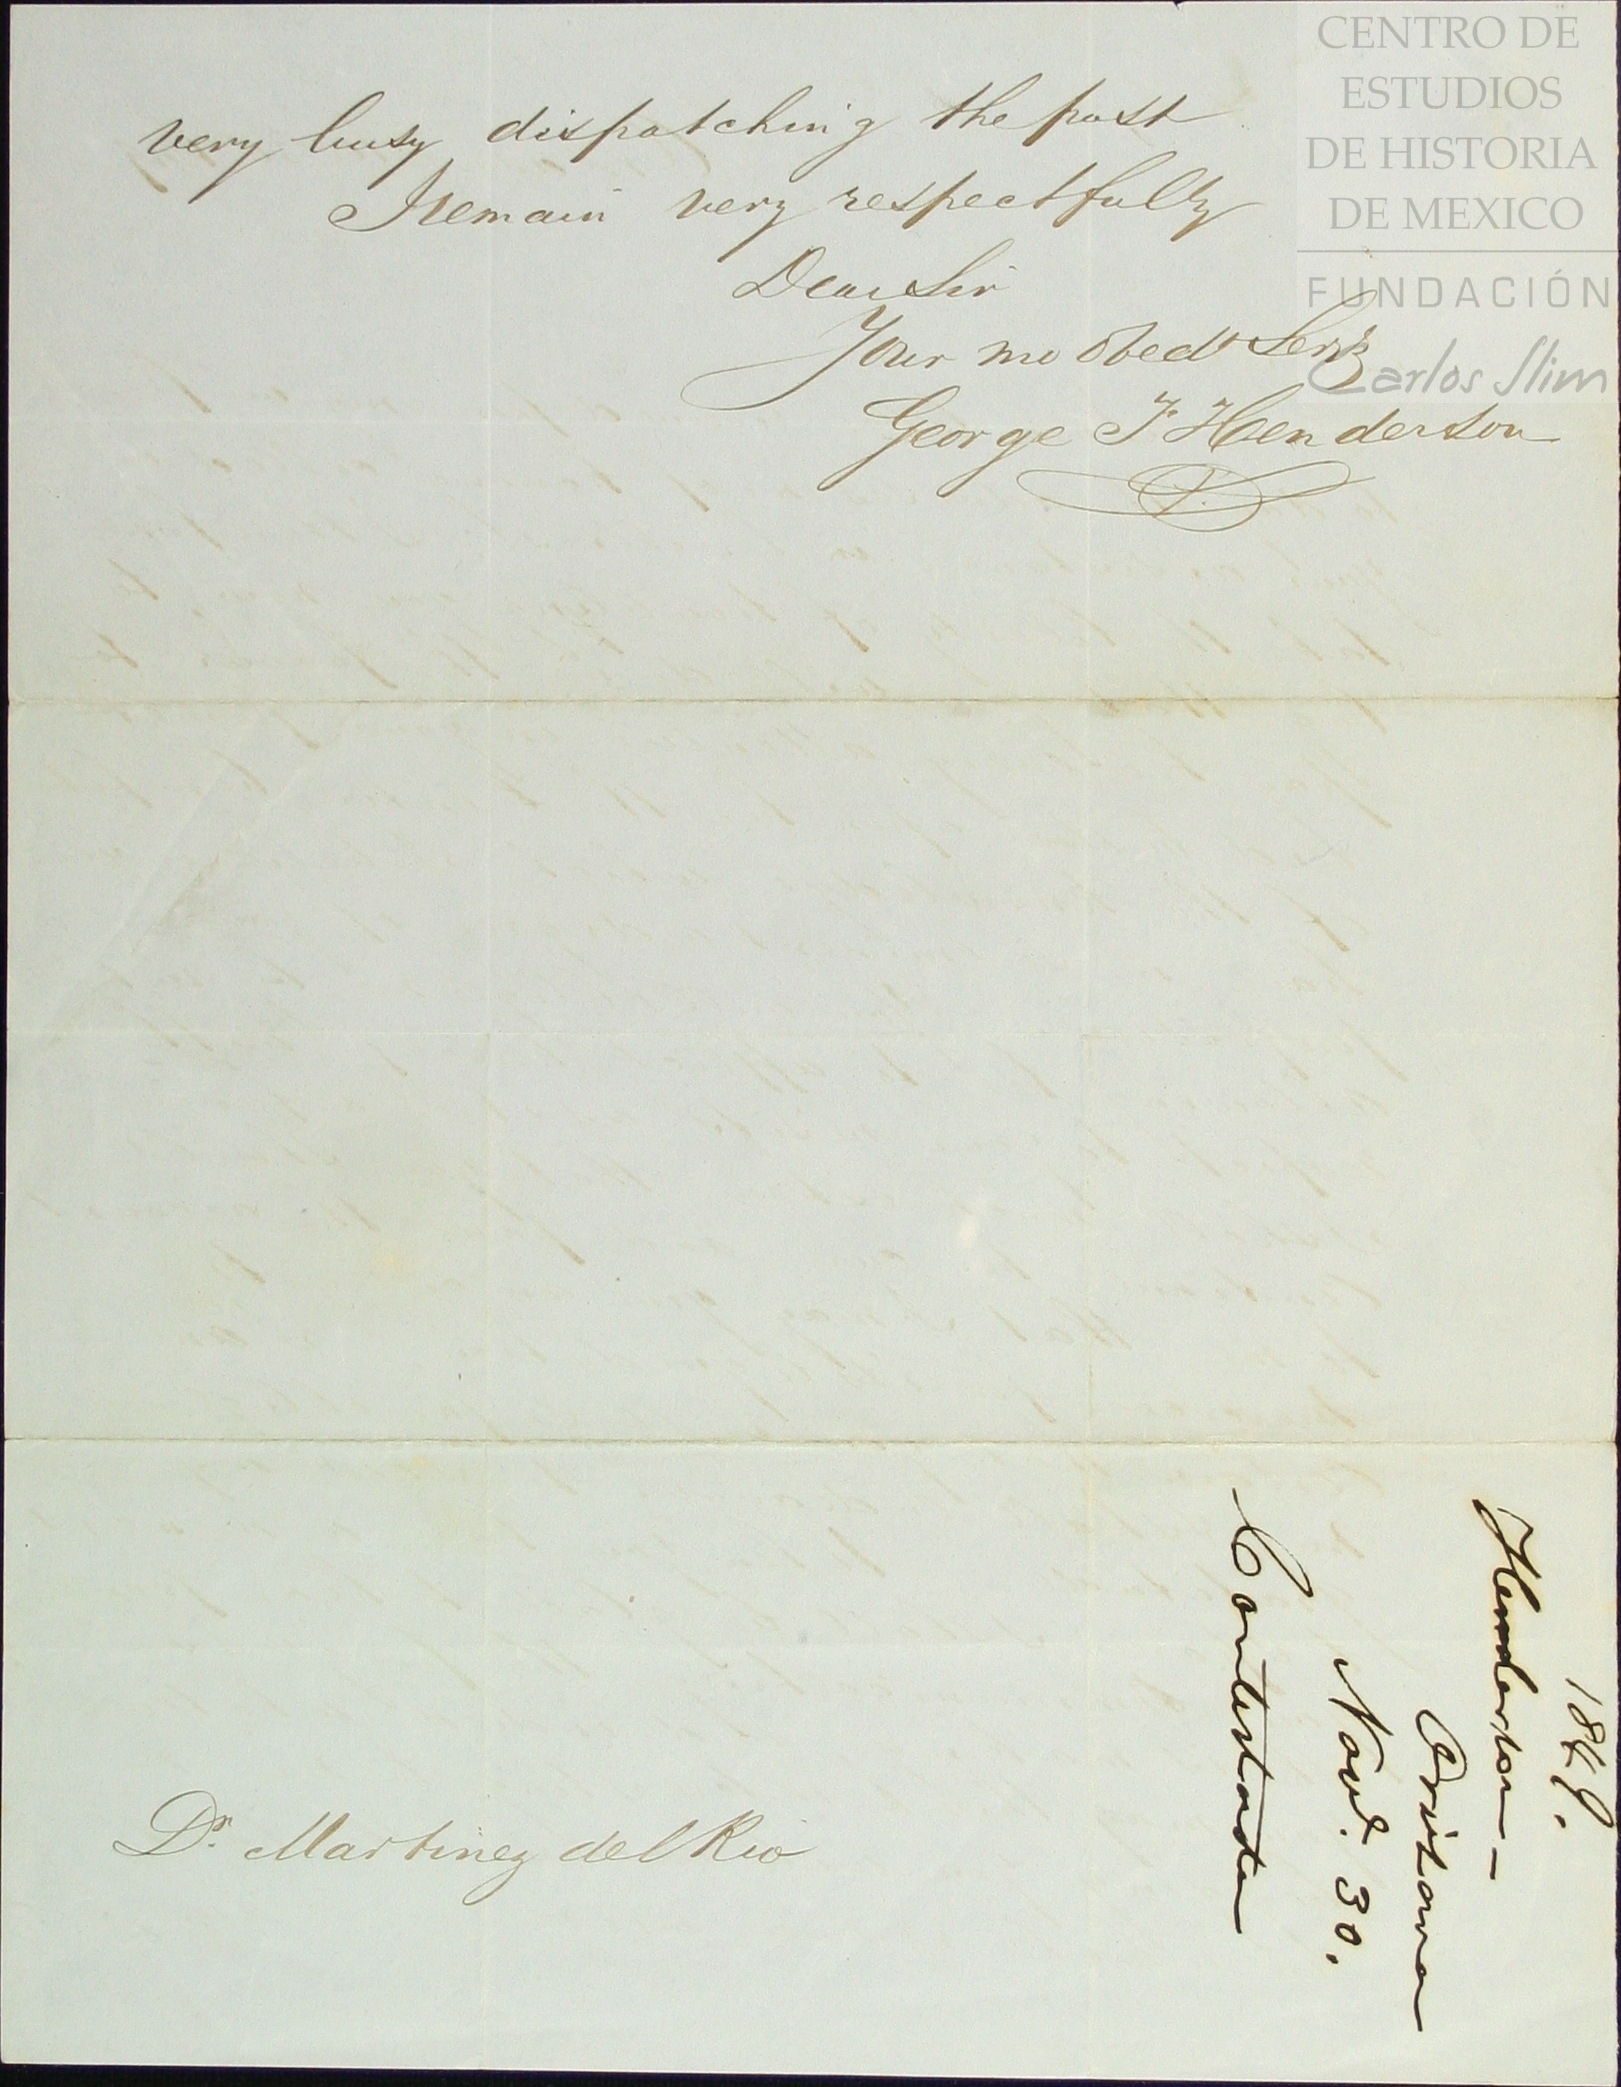 very busy dispatching the post
I remain very respectfully
Dear Sir
Your mo obedt Servt
George F Henderson
Dr. Martinez del Rio
1849.
Henderson —
Orizava
Novr. 30.
Contestada
CENTRO DE
ESTUDIOS
DE HISTORIA
DE MEXICO
FUNDACIÓN
Carlos Slim